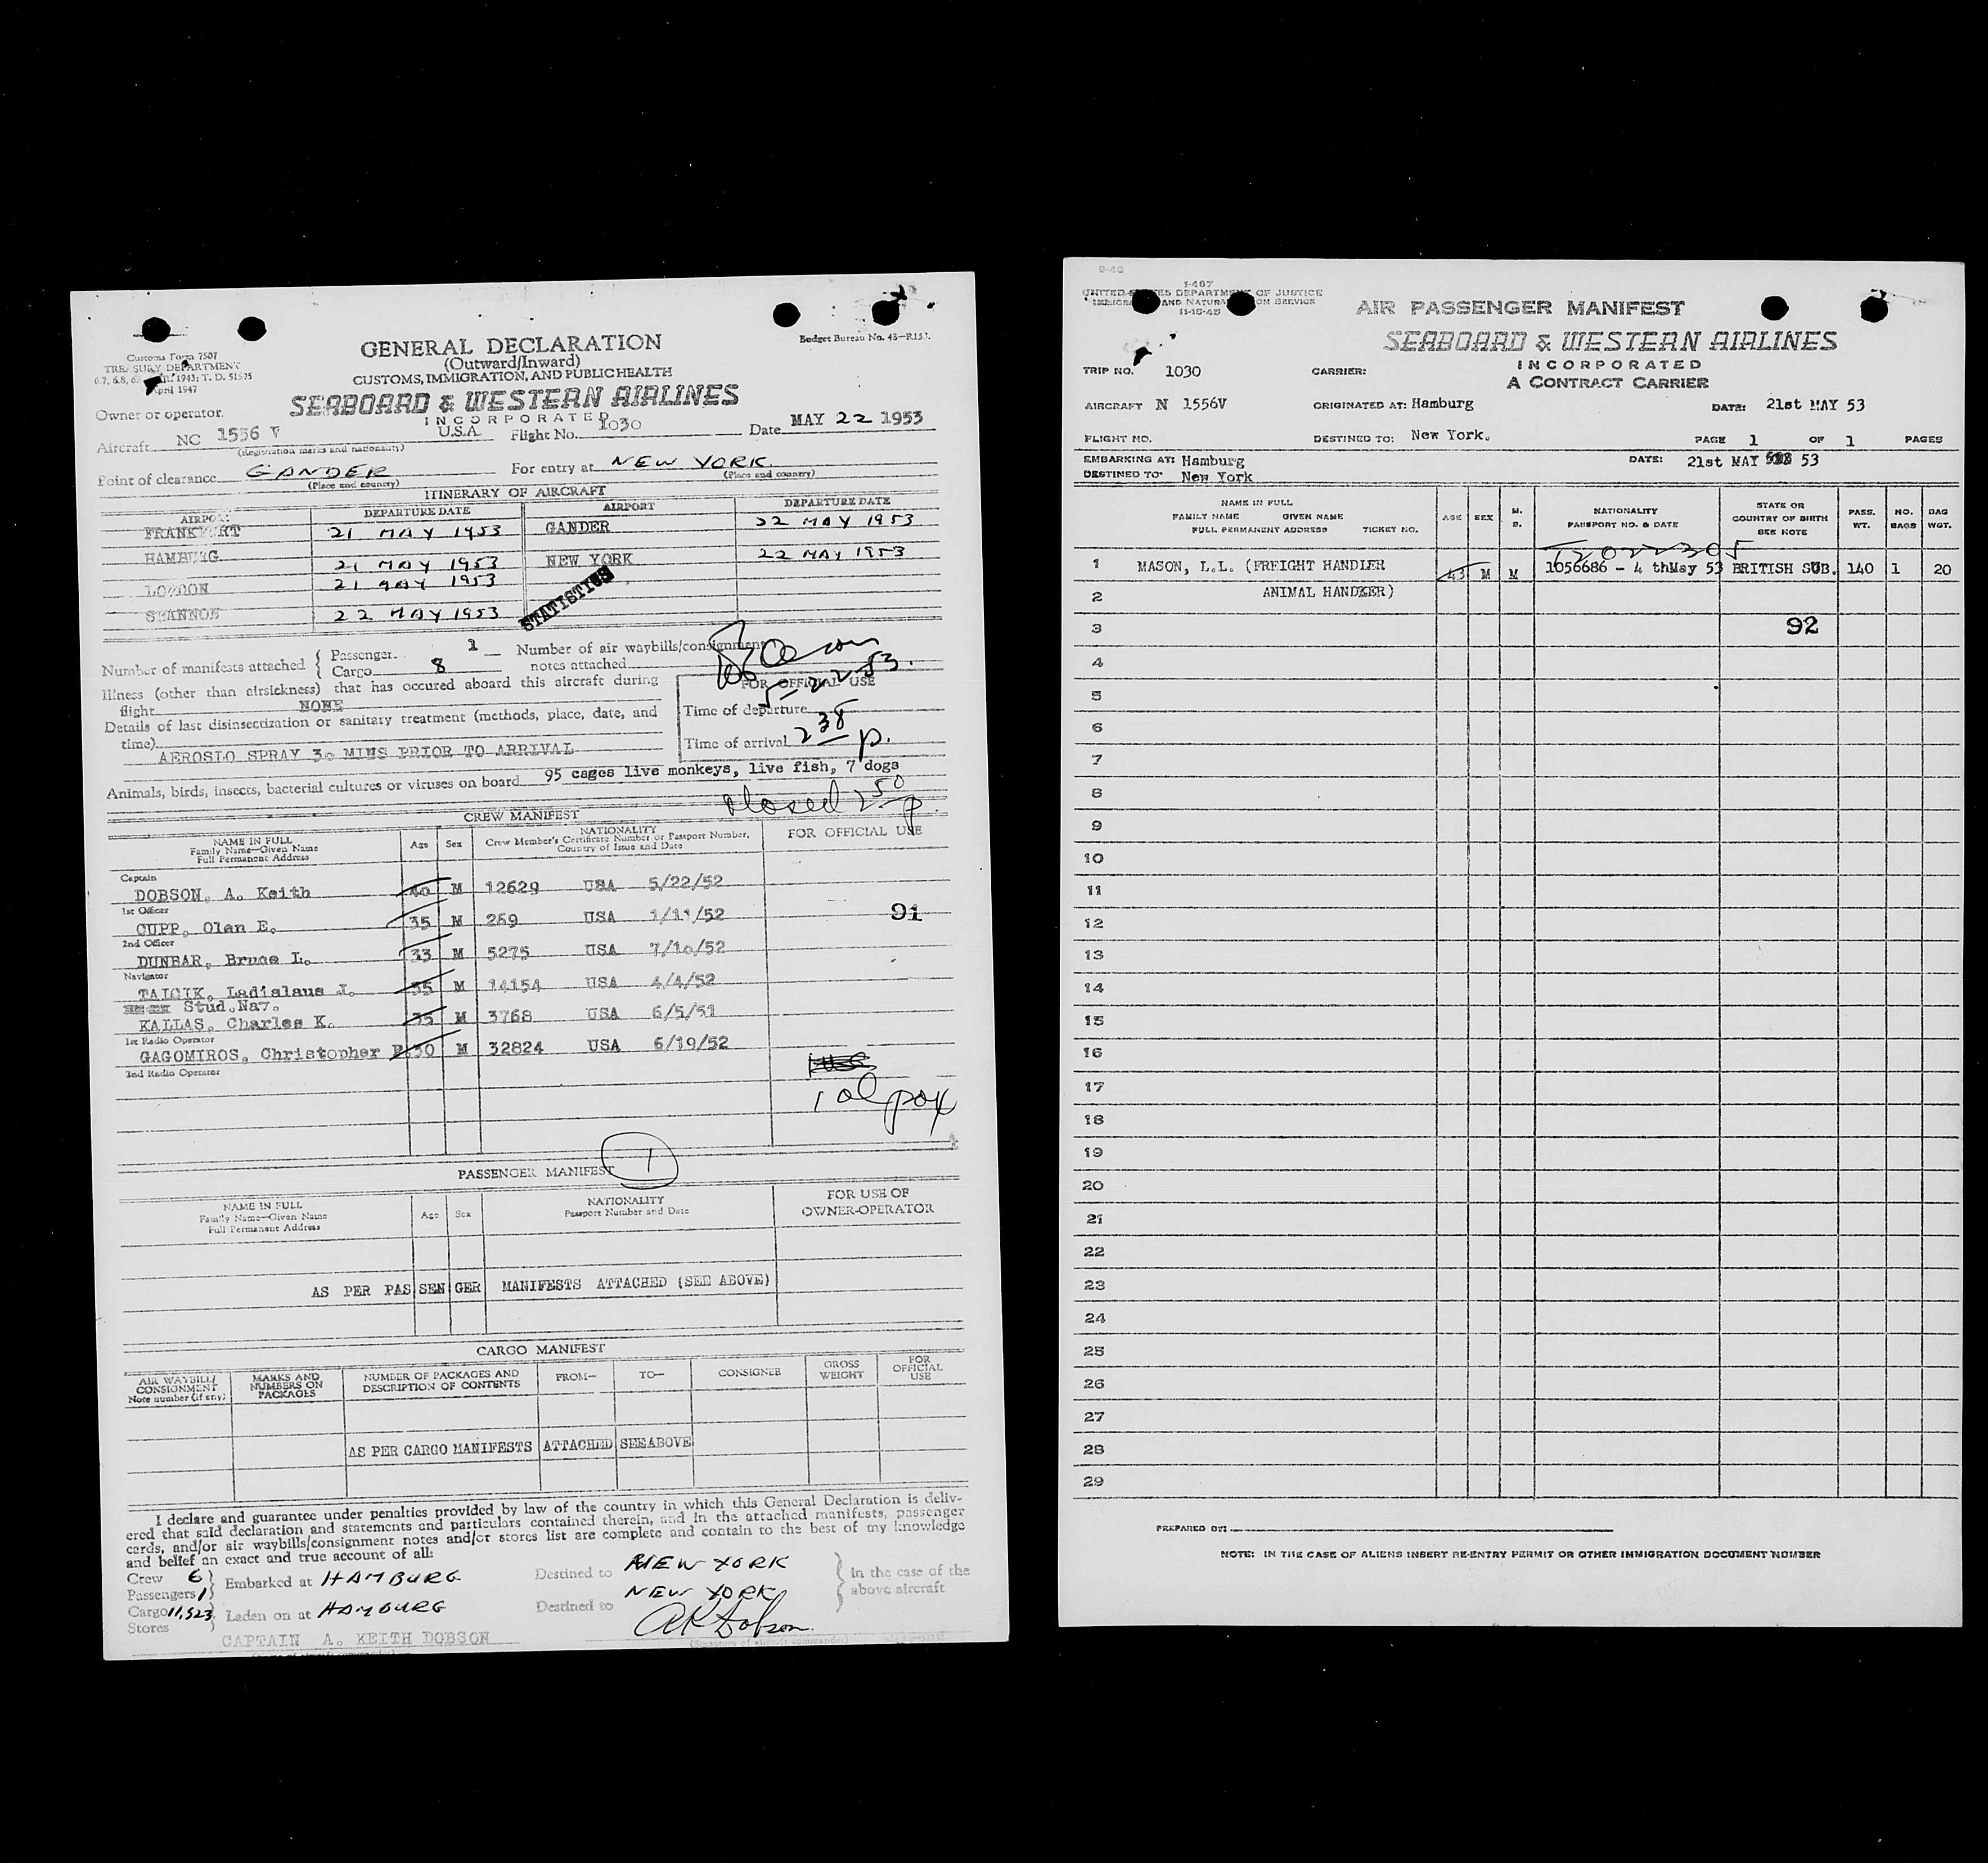 Customs Form 7507
TREASURY DEPARTMENT
April 1947
Budget Bureau No. 48-R153.
GENERAL DECLARATION
(Outward/Inward)
CUSTOMS, IMMIGRATION, AND PUBLIC HEALTH
Owner or operator.
SEABOARD & WESTERN AIRLINES
INCORPORATED
Aircraft NC 1556 V U.S.A. Flight No. 1030 Date MAY 22 1953
(Registration marks and nationality)
Point of clearance GANDER For entry at NEW YORK
(Place and country) (Place and country)
ITINERARY OF AIRCRAFT
AIRPORT DEPARTURE DATE AIRPORT DEPARTURE DATE
FRANKFURT 21 MAY 1953 GANDER 22 MAY 1953
HAMBURG 21 MAY 1953 NEW YORK 22 MAY 1953
LONDON 21 MAY 1953
SHANNON 22 MAY 1953
STATISTICS
Number of manifests attached { Passenger. 1 Number of air waybills/consignment
Cargo 8 notes attached
5-22-53.
Illness (other than airsickness) that has occured aboard this aircraft during
flight NONE
FOR OFFICIAL USE
Details of last disinsectization or sanitary treatment (methods, place, date, and
time)
Time of departure
AEROSLO SPRAY 30 MINS PRIOR TO ARRIVAL
Time of arrival 238 p.
Animals, birds, insects, bacterial cultures or viruses on board 95 cages live monkeys, live fish, 7 dogs
closed 250 p
CREW MANIFEST
NAME IN FULL
Family Name—Given Name
Full Permanent Address
Age Sex
NATIONALITY
Crew Member's Certificate Number or Passport Number,
Country of Issue and Date
FOR OFFICIAL USE
Captain
DOBSON, A. Keith 40 M 12629 USA 5/22/52
1st Officer
CUPP, Olan E. 35 M 269 USA 1/11/52 91
2nd Officer
DUNBAR, Bruce L. 33 M 5275 USA 7/10/52
Navigator
TAICIK, Ladislaus J. 35 M 14154 USA 4/4/52
Stud.Nav.
KALLAS, Charles K. 35 M 3768 USA 6/5/51
1st Radio Operator
GAGOMIROS, Christopher P. 30 M 32824 USA 6/19/52
2nd Radio Operator
1
PASSENGER MANIFEST
NAME IN FULL
Family Name—Given Name
Full Permanent Address
Age Sex
NATIONALITY
Passport Number and Date
FOR USE OF
OWNER-OPERATOR
AS PER PASSENGER MANIFESTS ATTACHED (SEE ABOVE)
CARGO MANIFEST
AIR WAYBILL/
CONSIGNMENT
Note number (if any)
MARKS AND
NUMBERS ON
PACKAGES
NUMBER OF PACKAGES AND
DESCRIPTION OF CONTENTS
FROM— TO— CONSIGNEE
GROSS
WEIGHT
FOR
OFFICIAL
USE
AS PER CARGO MANIFESTS ATTACHED SEE ABOVE
I declare and guarantee under penalties provided by law of the country in which this General Declaration is deliv-
ered that said declaration and statements and particulars contained therein, and in the attached manifests, passenger
cards, and/or air waybills/consignment notes and/or stores list are complete and contain to the best of my knowledge
and belief an exact and true account of all:
Crew 6 } Embarked at HAMBURG Destined to NEW YORK } In the case of the
Passengers 1 NEW YORK above aircraft
Cargo 11,523 } Laden on at HAMBURG Destined to
Stores
AK Dobson.
CAPTAIN A. KEITH DOBSON
9-48
I-467
UNITED STATES DEPARTMENT OF JUSTICE
IMMIGRATION AND NATURALIZATION SERVICE
11-15-45
AIR PASSENGER MANIFEST
SEABOARD & WESTERN AIRLINES
INCORPORATED
A CONTRACT CARRIER
TRIP NO. 1030 CARRIER:
AIRCRAFT N 1556V ORIGINATED AT: Hamburg DATE: 21st MAY 53
FLIGHT NO. DESTINED TO: New York. PAGE 1 OF 1 PAGES
EMBARKING AT: Hamburg DATE: 21st MAY 53
DESTINED TO: New York
NAME IN FULL
FAMILY NAME GIVEN NAME
FULL PERMANENT ADDRESS TICKET NO.
AGE SEX M. S.
NATIONALITY
PASSPORT NO. & DATE
STATE OR
COUNTRY OF BIRTH
SEE NOTE
PASS. WT.
NO. BAGS
BAG WGT.
T2022305
1 MASON, L.L. (FREIGHT HANDLER 43 M M 1056686 - 4 thMay 53 BRITISH SUB. 140 1 20
2 ANIMAL HANDKER)
3 92
4
5
6
7
8
9
10
11
12
13
14
15
16
17
18
19
20
21
22
23
24
25
26
27
28
29
PREPARED BY:
NOTE: IN THE CASE OF ALIENS INSERT RE-ENTRY PERMIT OR OTHER IMMIGRATION DOCUMENT NUMBER